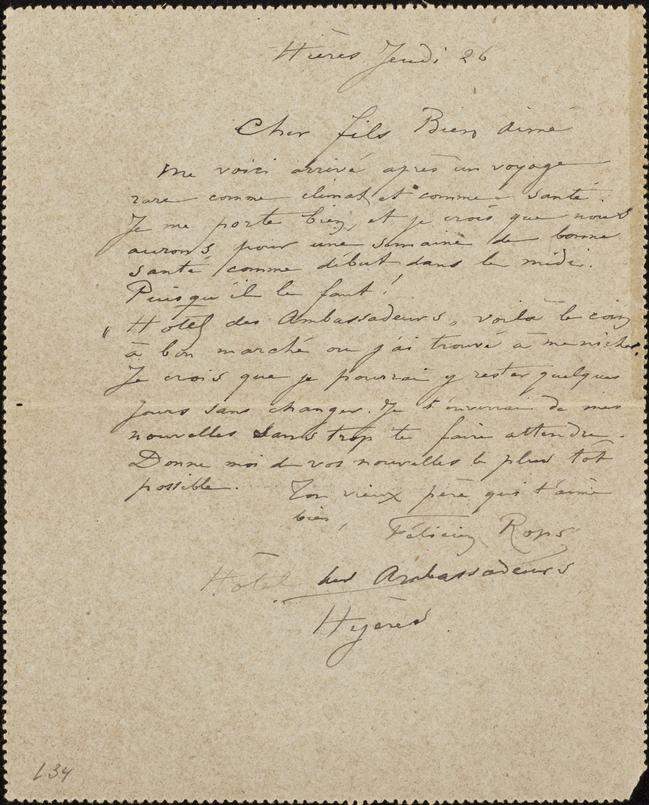 Hières Jeudi 26
Cher fils Bien aimé
Me voici arrivé après un voyage
rare comme climat et comme santé.
Je me porte bien, et je crois que nous
aurons pour une semaine de bonne
santé comme début dans le midi.
Puisqu'il le faut !
"Hotel des Ambassadeurs" voilà le coin
à bon marché ou j'ai trouvé à me nicher.
Je crois que je pourrai y rester quelques
jours sans changer. Je t'enverrai de mes
nouvelles sans trop te faire attendre.
Donne moi de vos nouvelles le plus tôt
possible. Ton vieux père qui t'aime
bien, Félicien Rops
Hôtel des Ambassadeurs
Hyères
134